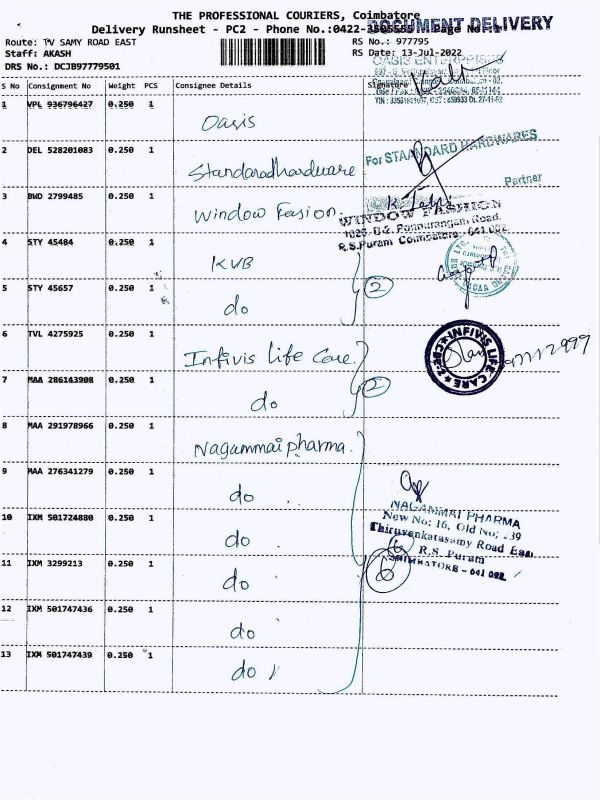 THE PROFESSIONAL COURIERS, Coimbatore
DOCUMENT DELIVERY
Delivery Runsheet - PC2 - Phone No.:0422-3505555 Page No
Route: TV SAMY ROAD EAST
RS No.: 977795
Staff: AKASH
RS Date: 13-Jul-2022
DRS No.: DCJB97779501
OASIS ENTERPRISES
S No Consignment No Weight PCS Consignee Details Signature
1 VPL 936796427 0.250 1 Oasis
2 DEL 528201083 0.250 1 Standaradhardware
For STAANDARD HARDWARES
Partner
3 BWD 2799485 0.250 1 Window Fasion.
WINDOW FASHION
1025-B2, Ponnurangam Road,
R.S.Puram Coimbatore - 641 002.
4 STY 45484 0.250 1 KVB
5 STY 45657 0.250 1 do
2
6 TVL 4275925 0.250 1 Infivis Life Care.
INFIVIS LIFE CARE
7 MAA 286143908 0.250 1 do
2
8 MAA 291978966 0.250 1 Nagammai pharma.
9 MAA 276341279 0.250 1 do
NAGAMMAI PHARMA
New No: 16, Old No: 39
Thiruvenkatasamy Road East,
R.S. Puram
COIMBATORE - 641 002.
10 IXM 501724880 0.250 1 do
11 IXM 3299213 0.250 1 do
6
12 IXM 501747436 0.250 1 do
13 IXM 501747439 0.250 1 do